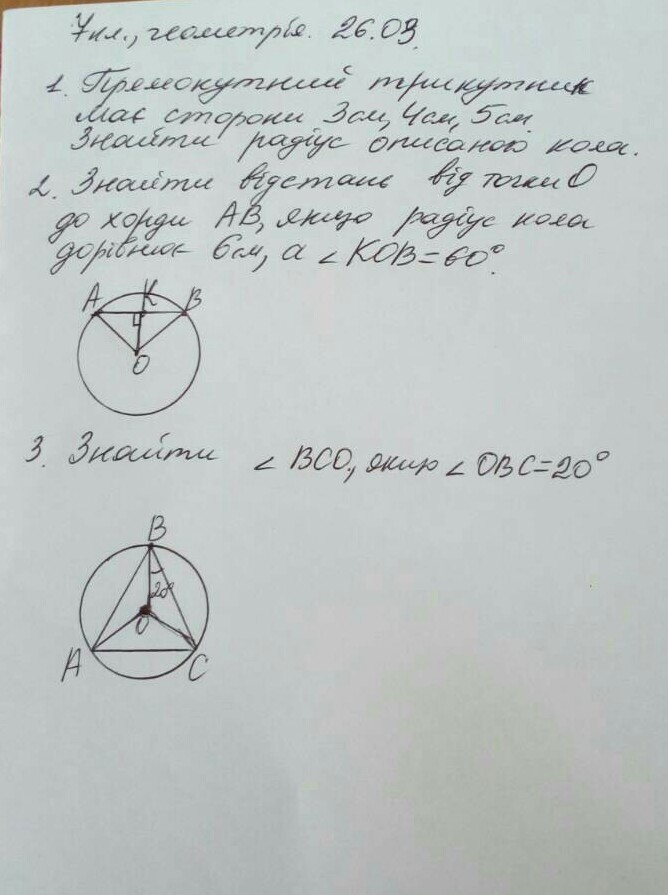 7 кл., геометрія. 26.03.
1. Прямокутний трикутник
має сторони 3см, 4см, 5см.
Знайти радіус описаного кола.
2. Знайти відстань від точки О
до хорди АВ, якщо радіус кола
дорівнює 6см, а ∠КОВ=60°.
А К В
О
3. Знайти ∠ ВСО, якщо ∠ ОВС=20°
В
20°
О
А С